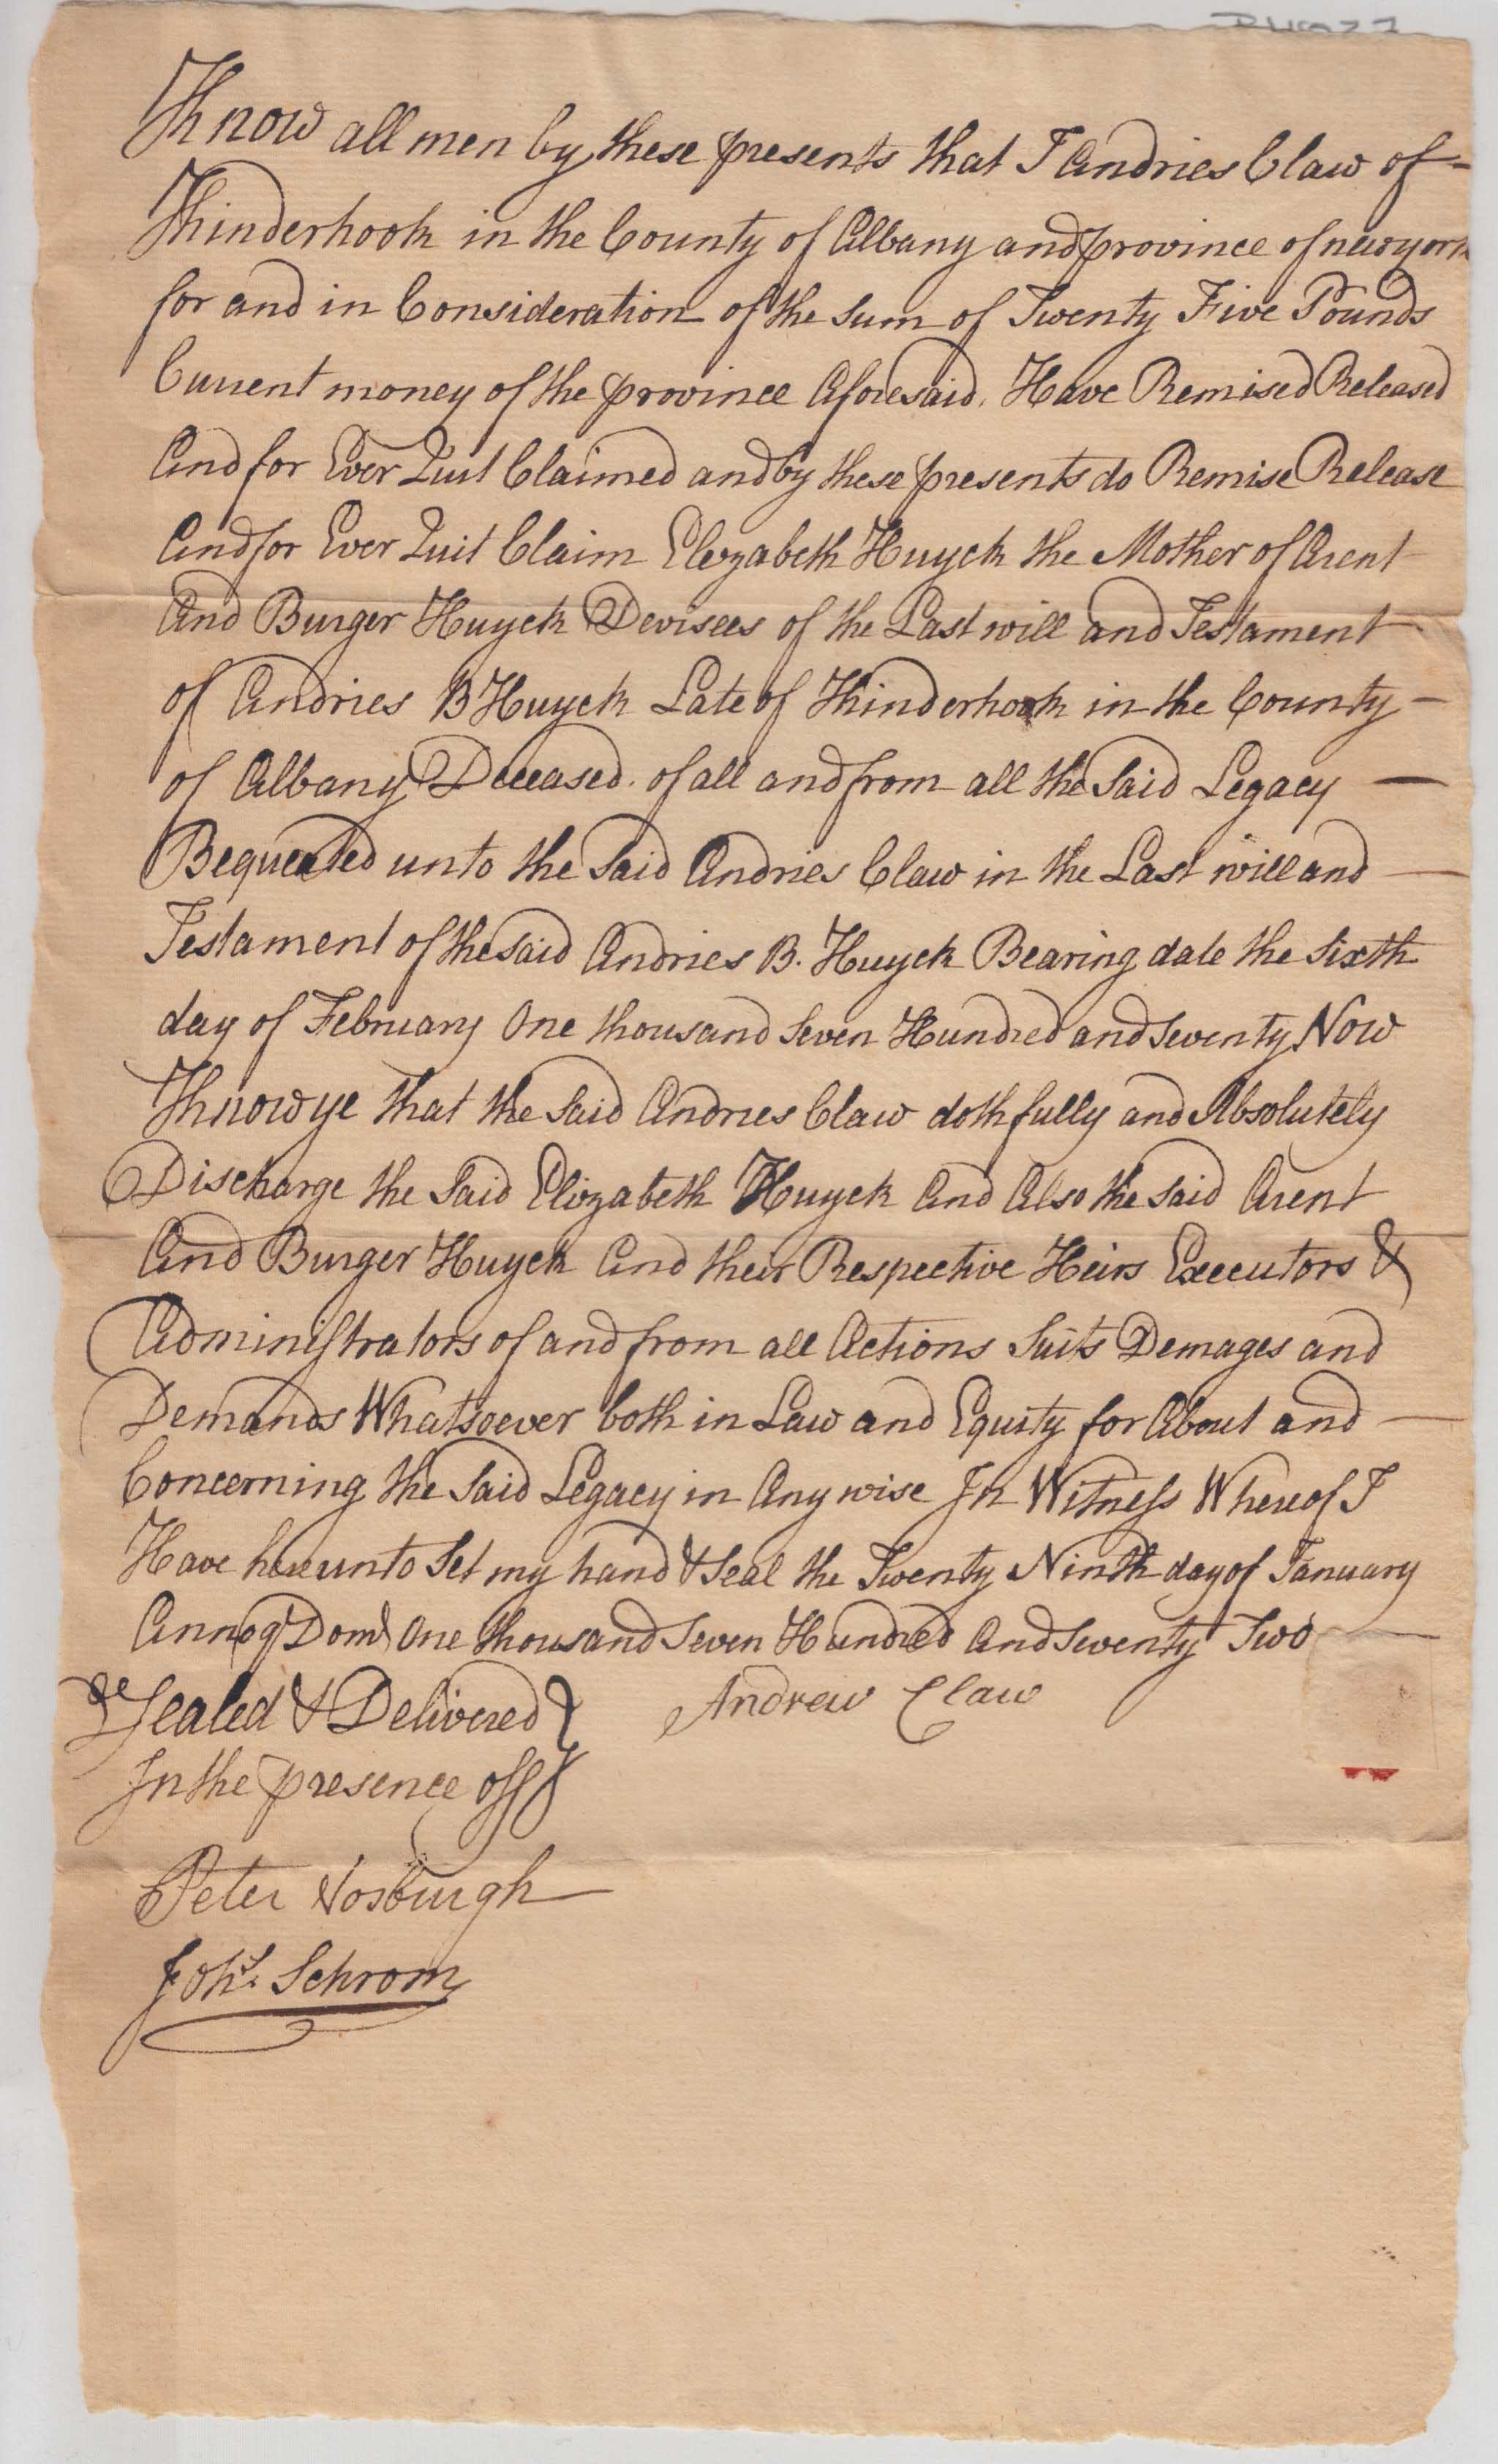 Know all men by these presents that I Andries Claw of
Kinderhook in the County of Albany and province of newyork
for and in Consideration of the Sum of Twenty Five Pounds
Current money of the province Aforesaid. Have Remised Released
And for Ever Quit Claimed and by these presents do Remise Release
And for Ever Quit Claim Elizabeth Huyck the Mother of Arent
And Burger Huyck Devisees of the Last will and Testament
of Andries B Huyck Late of Kinderhook in the County —
of Albany Deceased. of all and from all the Said Legacy —
Bequeated unto the Said Andries Claw in the Last will and —
Testament of the Said Andries B. Huyck Bearing date the Sixth
day of February One thousand Seven Hundred and Seventy Now
Know ye that the Said Andries Claw doth fully and Absolutely
Discharge the Said Elizabeth Huyck And Also the Said Arent
And Burger Huyck And their Respective Heirs Executors &
Administrators of and from all Actions Suits Demages and
Demands Whatsoever both in Law and Equity for About and —
Concerning the Said Legacy in Any wise In Witness Whereof I
Have hereunto Set my hand & Seal the Twenty Ninth day of January
Annoq Dom One thousand Seven Hundred And Seventy Two
Sealed & Delivered } Andrew Claw
In the presence off }
Peter Vosburgh
Johs. Schrom